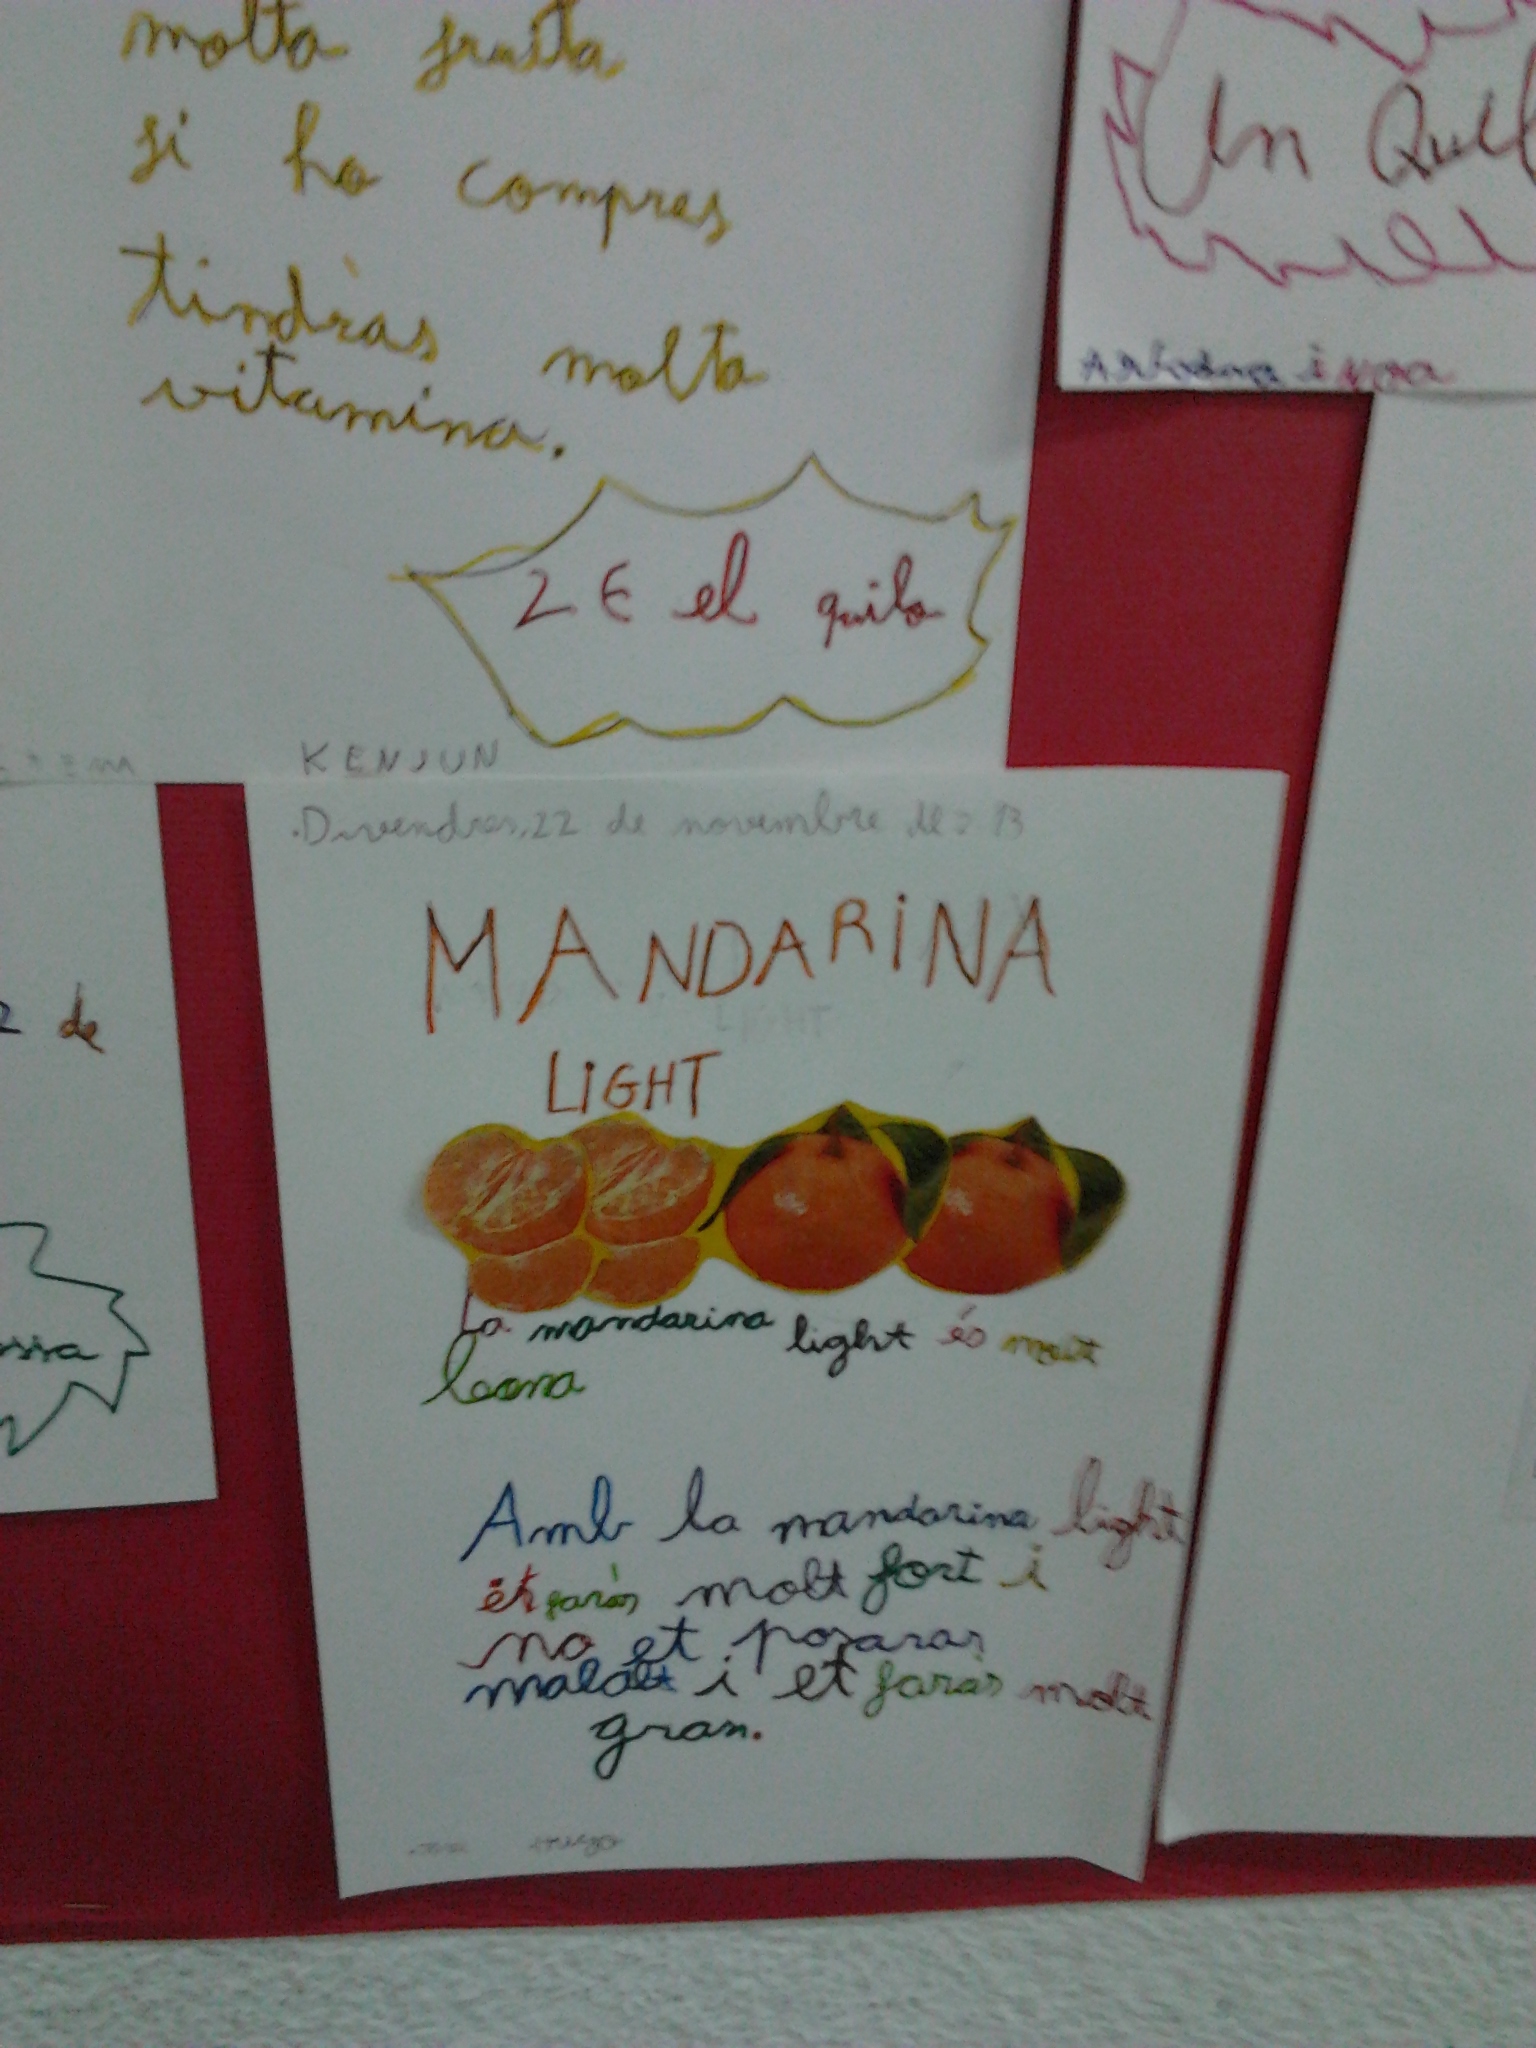 molta fruita
si ho compres
tindràs molta
vitamina.
2 € el quilo
KENJUN
Un Quil
i
de
Divendres, 22 de novembre de 13
MANDARINA
LIGHT
LIGHT
La mandarina light és molt
bona
Amb la mandarina light
et faràs molt fort i
no et posaras
malalt i et faràs molt
gran.